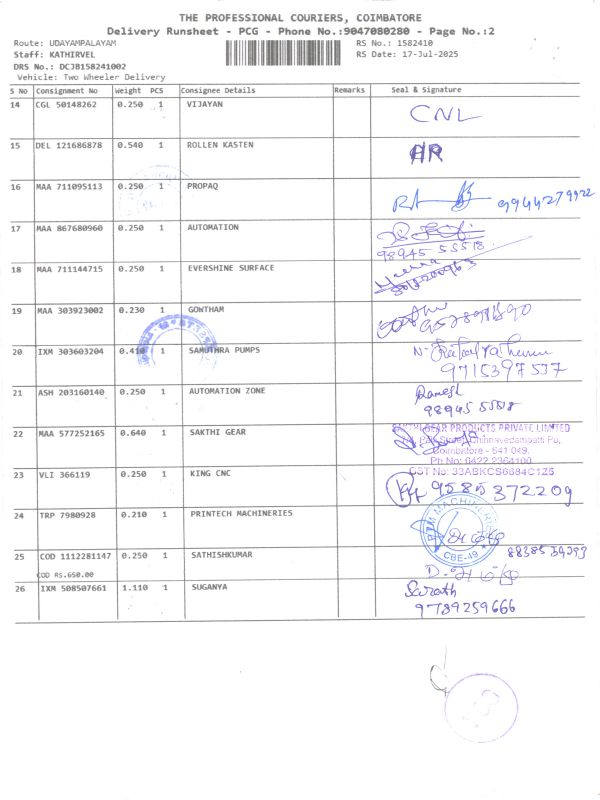 THE PROFESSIONAL COURIERS, COIMBATORE
Delivery Runsheet - PCG - Phone No.:9047080280 - Page No.:2
Route: UDAYAMPALAYAM
RS No.: 1582410
Staff: KATHIRVEL
RS Date: 17-Jul-2025
DRS No.: DCJB158241002
Vehicle: Two Wheeler Delivery
S No Consignment No Weight PCS Consignee Details Remarks Seal & Signature
14 CGL 50148262 0.250 1 VIJAYAN CNL
15 DEL 121686878 0.540 1 ROLLEN KASTEN HR
16 MAA 711095113 0.250 1 PROPAQ 9944279922
17 MAA 867680960 0.250 1 AUTOMATION
98945 55518
18 MAA 711144715 0.250 1 EVERSHINE SURFACE
19 MAA 303923002 0.230 1 GOWTHAM
20 IXM 303603204 0.410 1 SAMUTHRA PUMPS
9715397537
21 ASH 203160140 0.250 1 AUTOMATION ZONE Ramesh
98945 55518
22 MAA 577252165 0.640 1 SAKTHI GEAR GEAR PRODUCTS PRIVATE LIMITED
Chinnavedampatti Po,
Coimbatore - 641 049.
Ph No: 0422 2364100
GST No: 33ABKCS6684C1Z5
23 VLI 366119 0.250 1 KING CNC 9585372209
24 TRP 7980928 0.210 1 PRINTECH MACHINERIES
CBE-49
25 COD 1112281147 0.250 1 SATHISHKUMAR 8838534293
COD RS.650.00
26 IXM 508507661 1.110 1 SUGANYA Sarath
9789259666